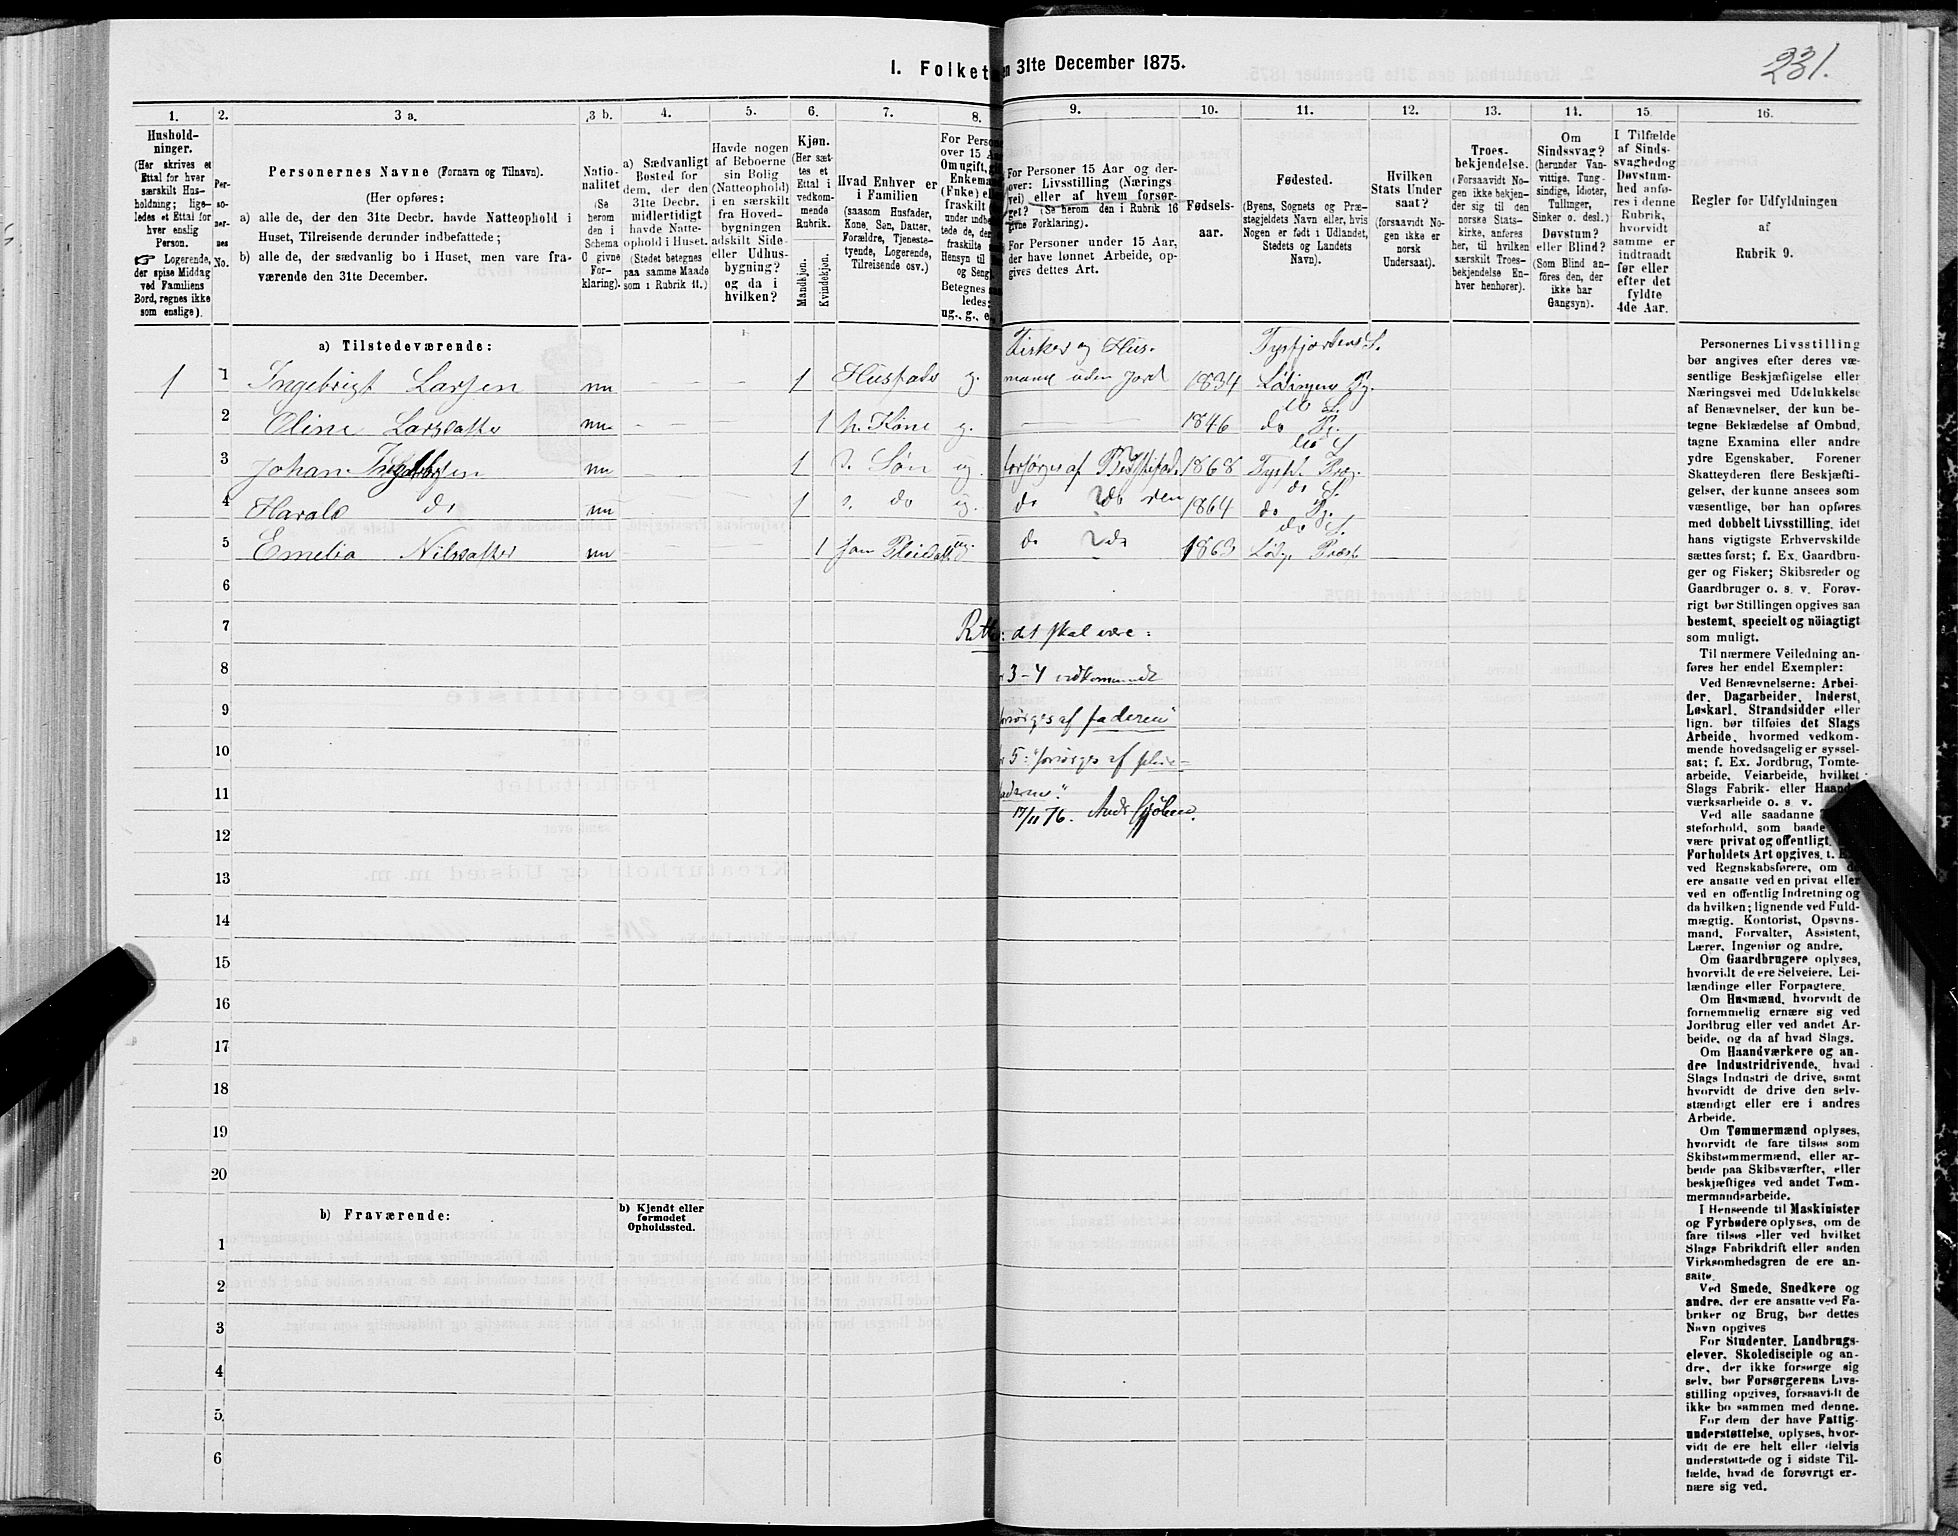 I. Folket
en 31te December 1875.
231.
1.
Hushold-
ninger.
(Her skrives et
Ettal for hver
særskilt Hus-
holdning; lige-
ledes et Ettal for
hver enslig
Person.
☞ Logerende,
der spise Middag
ved Familiens
Bord, regnes ikke
som enslige).
2.
Per-
so-
ner-
nes
No.
3 a.
Personernes Navne (Fornavn og Tilnavn).
(Her opføres:
a) alle de, der den 31te Decbr. havde Natteophold i
Huset, Tilreisende derunder indbefattede;
b) alle de, der sædvanlig bo i Huset, men vare fra-
værende den 31te December.
3 b.
Natio-
nalitet
(Se
herom
den i
Schema
C givne
For-
klaring).
4.
a) Sædvanligt
Bosted for
dem, der den
31te Decbr.
midlertidigt
havde Natte-
ophold i Huset.
(Stedet betegnes
paa samme Maade
som i Rubrik 11.)
5.
Havde nogen
af Beboerne
sin Bolig
(Natteophold)
i en særskilt
fra Hoved-
bygningen
adskilt Side-
eller Udhus-
bygning?
og da i
hvilken?
6.
Kjøn.
(Her sæt-
tes et
Ettal i
vedkom-
mende
Rubrik.
Mandkjøn.
Kvindekjøn.
7.
Hvad Enhver er
i Familien
(saasom Husfader,
Kone, Søn, Datter,
Forældre, Tjeneste-
tyende, Logerende,
Tilreisende osv.)
8.
For Perso
over 15 A
Om ugift, g
Enkema
(Fnke) el
fraskilt
under indbe
tede de, der
fraskilte
Hensyn til
og Seng
Betegnes
ledes:
ug., g., e.
9.
For Personer 15 Aar og der-
over: Livsstilling (Nærings
vei) eller af hvem forsør-
get? (Se herom den i Rubrik 16
givne Forklaring).
For Personer under 15 Aar,
der have lønnet Arbeide, op-
gives dettes Art.
10.
Fødsels-
aar.
11.
Fødested.
(Byens, Sognets og Præ-
stegjeldets Navn eller, hvis
Nogen er født i Udlandet,
Stedets og Landets
Navn).
12.
Hvilken
Stats Under
saat?
(forsaavidt No-
gen ikke er
norsk
Undersaat).
13.
Troes-
bekjendelse.
(Forsaavidt No-
gen ikke bekjen-
der sig til den
norske Stats-
kirke, anføres
her, til hvilken
særskilt Troes-
bekjendelse En-
hver henhører).
14.
Om
Sindssvag?
(herunder Van-
vittige, Tung-
sindige, Idioter,
Tullinger,
Sinker o. desl.)
Døvstum?
eller Blind?
(Som Blind an-
føres den, der
ikke har
Gangsyn).
15.
I Tilfælde
af Sinds-
svaghed og
Døvstum-
hed anfø-
res i denne
Rubrik,
hvorvidt
samme er
indtraadt
før eller
efter det
fyldte
4de Aar.
16.
Regler for Udfyldningen
af
Rubrik 9.
a) Tilstedeværende:
Fisker og Hus- Tysfjordens S.
1 1 Ingebrigt Larsen nu — — 1 Husfader g. mand uden Jord 1834 Lødingens Pg.
do S.
2 Oline Larsdatter nu — — 1 h. Kone g. — 1846 do Pg.
do S.
3 Johan nu 1 d. Søn ug. forsørges af 1868 Tysf. Præg.
do S.
4 Harald do nu 1 d. do ug. do do 1864 do Pg.
do S.
5 Emelia Nilsdatter nu 1 ug. do do 1863 Løding Præst
6
7 : det skal være:
8 3-4 vedkommende
9 forsørges af faderen"
10 5: "forsørges af pleie-
11 faderen."
17/11 76.
12
13
14
15
16
17
18
19
20
b) Fraværende:
b) Kjendt eller
formodet
Opholdssted.
1
2
3
4
5
6
Personernes Livsstilling
bør angives efter deres væ-
sentlige Beskjæftigelse eller
Næringsvei med Udelukkelse
af Benævnelser, der kun be-
tegne Beklædelse af Ombud,
tagne Examina eller andre
ydre Egenskaber. Forener
Skatteyderen flere Beskjæfti-
gelser, der kunne ansees som
væsentlige, bør han opføres
med dobbelt Livsstilling, idet
hans vigtigste Erhvervskilde
sættes først; f. Ex. Gaardbru-
ger og Fisker; Skibsreder og
Gaardbruger o. s. v. Forøv-
rigt bør Stillingen opgives saa
bestemt, specielt og nøiagtigt
som muligt.
Til nærmere Veiledning an-
føres her endel Exempler:
Ved Benævnelserne: Arbei-
der, Dagarbeider, Inderst,
Løskarl, Strandsidder eller
lign. bør tilføies det Slags
Arbeide, hvormed vedkom-
mende hovedsagelig er syssel-
sat; f. Ex. Jordbrug, Tomte-
arbeide, Veiarbeide, hvilket
Slags Fabrik- eller Haand-
værksarbeide o. s. v.
Ved alle saadanne
steforhold, som baade
være privat og offentligt,
Forholdets Art opgives, t.
ved Regnskabsførere, om
ere ansatte ved en privat eller
ved en offentlig Indretning og
da hvilken; lignende ved Fuld-
mægtig, Kontorist, Opsyns-
mand, Forvalter, Assistent,
Lærer, Ingeniør og andre.
Om Gaardbrugere oplyses,
hvorvidt de ere Selveiere, Lei-
lændinge eller Forpagtere.
Om Husmænd, hvorvidt de
fornemmelig ernære sig ved
Jordbrug eller ved andet Ar-
beide, og da af hvad Slags.
Om Haandværkere og an-
dre Industridrivende, hvad
Slags Industri de drive, samt
hvorvidt de drive den selv-
stændigt eller ere i andres
Arbeide.
Om Tømmermænd oplyses,
hvorvidt de fare tilsøs som
Skibstømmermænd, eller ar-
beide paa Skibsværfter, eller
beskjæftiges ved andet Tøm-
mermandsarbeide.
I Henseende til Maskinister
og Fyrbødere oplyses, om de
fare tilsøs eller ved hvilket
Slags Fabrikdrift eller anden
Virksomhedsgren de ere an-
satte.
Ved Smede, Snedkere og
andre, der ere ansatte ved Fa-
briker og Brug, bør dettes
Navn opgives
For Studenter, Landbrugs-
elever, Skoledisciple og an-
dre, der ikke forsørge sig
selv, bør Forsørgerens Livs-
stilling opgives, forsaavidt de
ikke bo sammen med denne.
For dem der have Fattig-
understøttelse, oplyses, hvor-
vidt de ere helt eller delvis
understøttede og i sidste Til-
fælde, hvad de forøvrigt er-
nære sig ved.